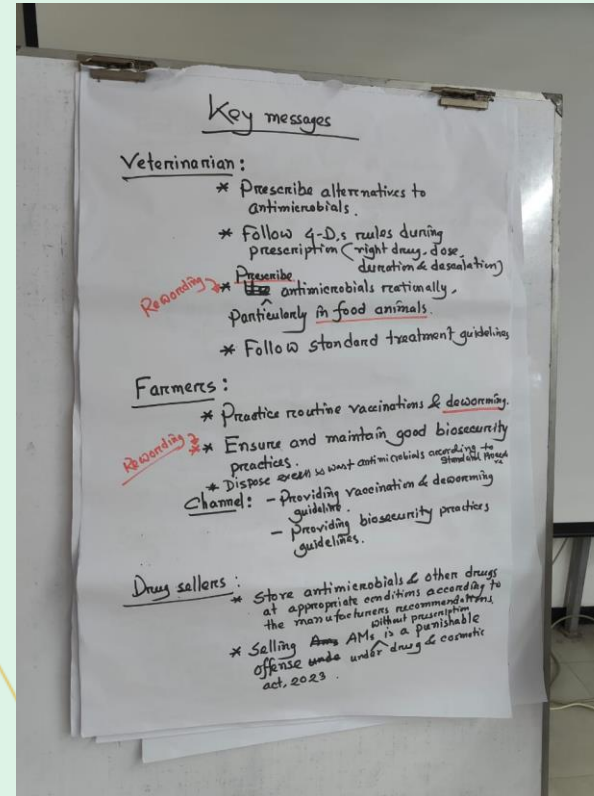 Key messages
Veterinarian:
* Prescribe alternatives to
antimicrobials.
* Follow 4-D,s rules during
prescription (right drug, dose,
duration & descalation)
Rewording Prescribe
* antimicrobials rationally,
particularly in food animals.
* Follow standard treatment guidelines
Farmers:
* Practice routine vaccinations & deworming.
Rewording
* Ensure and maintain good biosecurity
practices.
* Dispose antimicrobials according to
Standard
Channel: - Providing vaccination & deworming
guideline.
- Providing biosecurity practices
guidelines.
Drug sellers:
* Store antimicrobials & other drugs
at appropriate conditions according to
the manufacturers recommendations.
without prescription
* Selling AMs is a punishable
offense under drug & cosmetic
act, 2023.